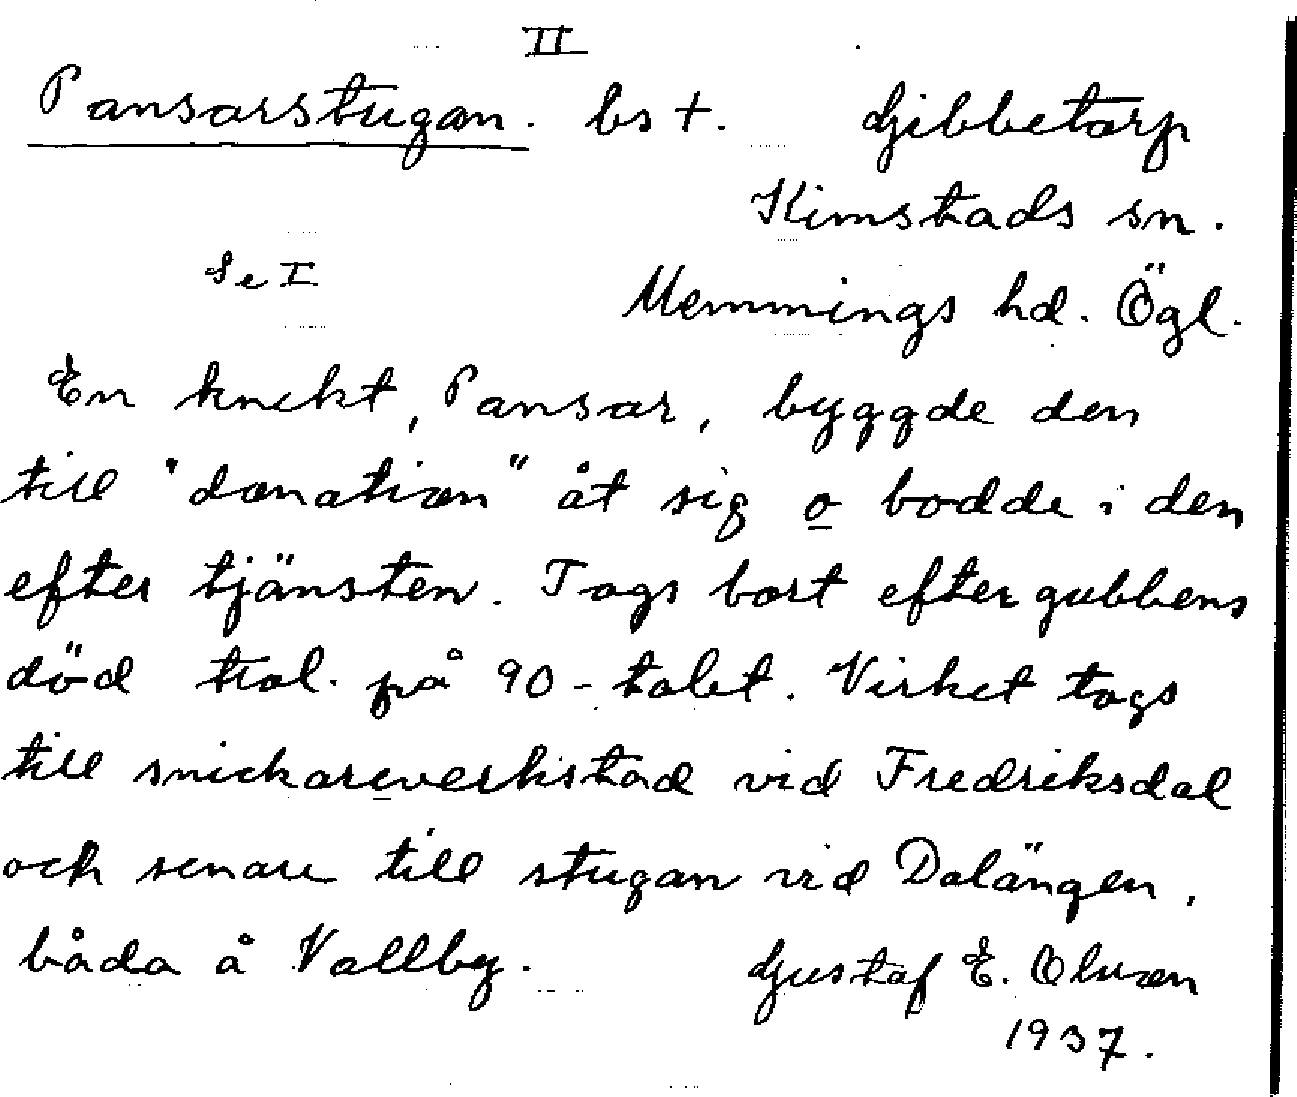 II
Pansarstugan. bs †. Gibbetorp
Kimstads sn.
Se I
Memmings hd. Ögl.
En knekt, Pansar, byggde den
till "donation" åt sig o bodde i den
efter tjänsten. Togs bort efter gubbens
död trol. på 90-talet. Virket togs
till snickareverkstad vid Fredriksdal
och senare till stugan vid Dalängen,
båda å Vallby. Gustaf E. Olson
1937.